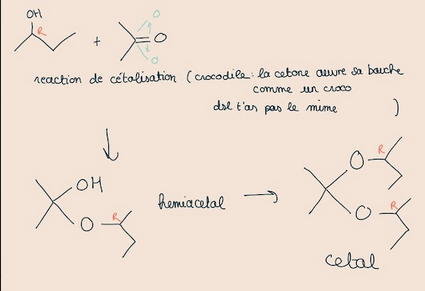 OH
R
+
O
O
O
reaction de cétalisation ( crocodile : la cetone ouvre sa bouche
comme un croco
dsl t'as pas le mime )
OH
R
O
hemiacetal
O
R
O
R
cetal